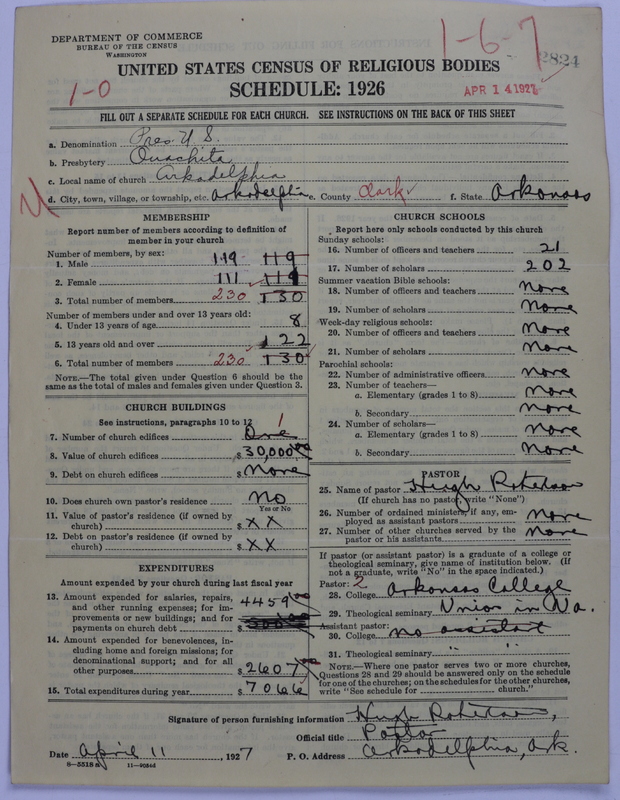 1-6-7
DEPARTMENT OF COMMERCE
BUREAU OF THE CENSUS
WASHINGTON
2824
UNITED STATES CENSUS OF RELIGIOUS BODIES
1-0
SCHEDULE: 1926
APR 14 1927
FILL OUT A SEPARATE SCHEDULE FOR EACH CHURCH. SEE INSTRUCTIONS ON THE BACK OF THIS SHEET
a. Denomination Pres. U.S.
b. Presbytery Ouachita
c. Local name of church Arkadelphia
d. City, town, village, or township, etc. Arkadelphia e. County Clark f. State Arkansas
MEMBERSHIP
Report number of members according to definition of
member in your church
Number of members, by sex:
1. Male 119 119
2. Female 111 111
3. Total number of members 230 130
Number of members under and over 13 years old:
4. Under 13 years of age 8
5. 13 years old and over 122
6. Total number of members 230 130
NOTE.—The total given under Question 6 should be the
same as the total of males and females given under Question 3.
CHURCH BUILDINGS
See instructions, paragraphs 10 to 12
1
7. Number of church edifices One
8. Value of church edifices $ 30,000.00
9. Debt on church edifices $ None
10. Does church own pastor's residence No
Yes or No
11. Value of pastor's residence (if owned by
church) $ X X
12. Debt on pastor's residence (if owned by
church) $ X X
EXPENDITURES
Amount expended by your church during last fiscal year
13. Amount expended for salaries, repairs,
and other running expenses; for im-
provements or new buildings; and for
payments on church debt $ 4459.00
14. Amount expended for benevolences, in-
cluding home and foreign missions; for
denominational support; and for all
other purposes $ 2607
15. Total expenditures during year $ 7066
CHURCH SCHOOLS
Report here only schools conducted by this church
Sunday schools:
16. Number of officers and teachers 21
17. Number of scholars 202
Summer vacation Bible schools:
18. Number of officers and teachers None
19. Number of scholars None
Week-day religious schools:
20. Number of officers and teachers None
21. Number of scholars None
Parochial schools:
22. Number of administrative officers None
23. Number of teachers—
a. Elementary (grades 1 to 8) None
b. Secondary None
24. Number of scholars—
a. Elementary (grades 1 to 8) None
b. Secondary None
PASTOR
25. Name of pastor Hugh Robertson
(If church has no pastor, write "None")
26. Number of ordained ministers, if any, em-
ployed as assistant pastors None
27. Number of other churches served by the
pastor or his assistants None
If pastor (or assistant pastor) is a graduate of a college or
theological seminary, give name of institution below. (If
not a graduate, write "No" in the space indicated.)
Pastor: 2
28. College Arkansas College
29. Theological seminary Union in Va.
Assistant pastor:
30. College no assistant
31. Theological seminary " "
NOTE.—Where one pastor serves two or more churches,
Questions 28 and 29 should be answered only on the schedule
for one of the churches; on the schedules for the other churches,
write "See schedule for church."
Signature of person furnishing information Hugh Robertson,
Official title Pastor
Date April 11, 1927 P. O. Address Arkadelphia, Ark.